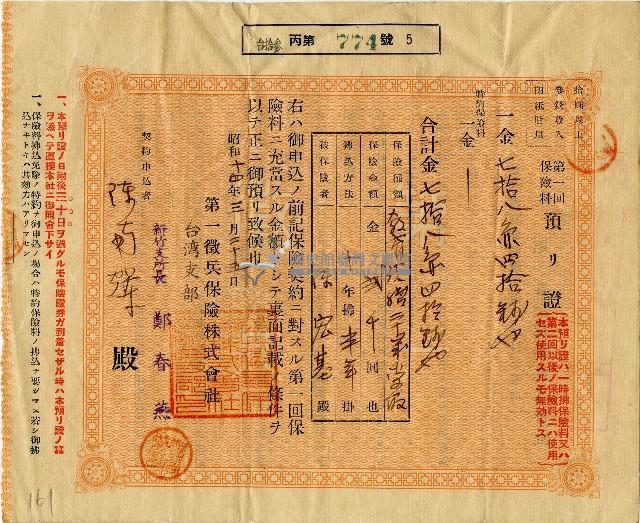 丙第 774 號 5
第一回保険料 預リ證
一金七拾八円四拾銭也
特約保険料
一金
合計金七拾八円四拾銭也
保険種類
保険金額 金 貳千 圓也
拂込方法 年拂 半年 掛
被保険者 陳 宏基 殿
右ハ御申込ノ前記保険契約ニ對スル第一回保
険料ニ充當スル金額トシテ裏面記載ノ條件ヲ
以テ正ニ御預リ致候也
昭和十四年三月二十五日
第一徴兵保險株式會社
台湾支部
新竹支所長 鄭春燕
契約申込者
殿
本預リ證ハ一時拂保險料又ハ
第二回以後ノ保險料ニハ使用
セズ使用スルモ無効トス
一、本預リ證ノ日附後三十日ヲ過グルモ保險證券ガ到着セザル時ハ本預リ證ノ
ヲ添ヘテ直接本社ニ御照會下サイ
一、保險料拂込免除ノ特約ヲ御申込ノ場合ハ特約保險料ノ拂込ヲ要シマス若シ御拂
込ナキトキハ其効力ハアリマセン
161